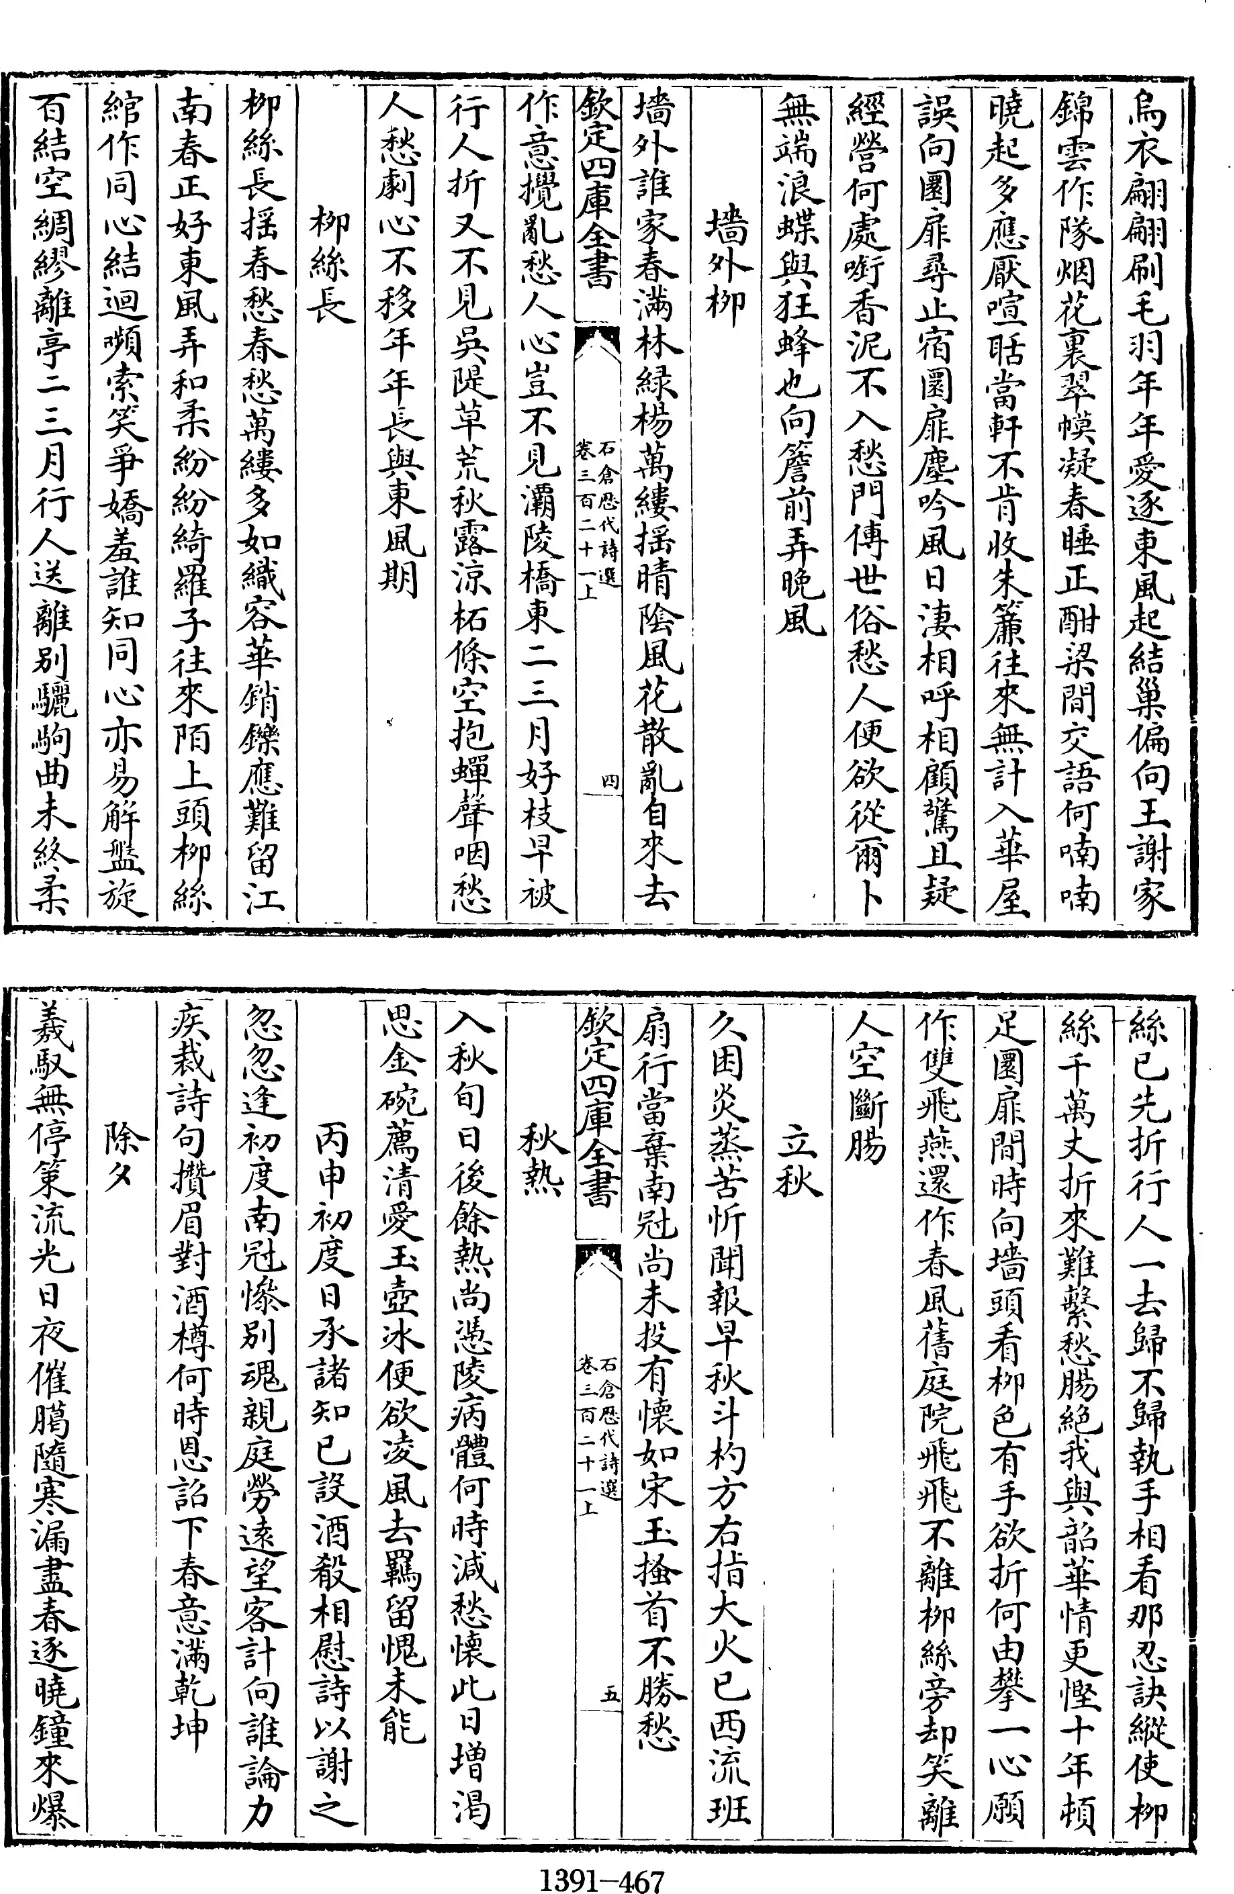 烏衣翩翩刷毛羽年年愛逐東風起結巢偏向王謝家
錦雲作隊烟花裏翠幙凝春睡正酣梁間交語何喃喃
曉起多應厭喧聒當軒不肯收朱簾往來無計入華屋
誤向圜扉尋止宿圜扉塵吟風日淒相呼相顧驚且疑
經營何處啣香泥不入愁門傅世俗愁人便欲從爾卜
無端浪蝶與狂蜂也向簷前弄晚風
墻外柳
墻外誰家春滿林緑楊萬縷揺晴陰風花散亂自來去
欽定四庫全書
石倉歴代詩選
卷三百二十一上
四
作意攪亂愁人心豈不見灞陵橋東二三月好枝早被
行人折又不見吳隄草荒秋露涼柘條空抱蟬聲咽愁
人愁劇心不移年年長與東風期
柳絲長
柳絲長揺春愁春愁萬縷多如織容華銷鑠應難留江
南春正好東風弄和柔紛紛綺羅子往來陌上頭柳絲
綰作同心結迴嚬索笑爭嬌羞誰知同心亦易解盤旋
百結空綢繆離亭二三月行人送離别驪駒曲未終柔
絲已先折行人一去歸不歸執手相看那忍訣縱使柳
絲千萬丈折來難繫愁腸絶我與韶華情更慳十年頓
足圜扉間時向墻頭看柳色有手欲折何由攀一心願
作雙飛燕還作春風舊庭院飛飛不離柳絲旁却笑離
人空斷腸
立秋
久困炎蒸苦忻聞報早秋斗杓方右指大火已西流班
扇行當棄南冠尚未投有懷如宋玉搔首不勝愁
欽定四庫全書
石倉歴代詩選
卷三百二十一上
五
秋熱
入秋旬日後餘熱尚憑陵病體何時減愁懷此日增渴
思金碗薦清愛玉壺冰便欲凌風去羈留愧未能
丙申初度日承諸知已設酒殽相慰詩以謝之
忽忽逢初度南冠慘别魂親庭勞遠望客計向誰論力
疾裁詩句攢眉對酒樽何時恩詔下春意滿乾坤
除夕
羲馭無停策流光日夜催臈隨寒漏盡春逐曉鐘來爆
1391—467